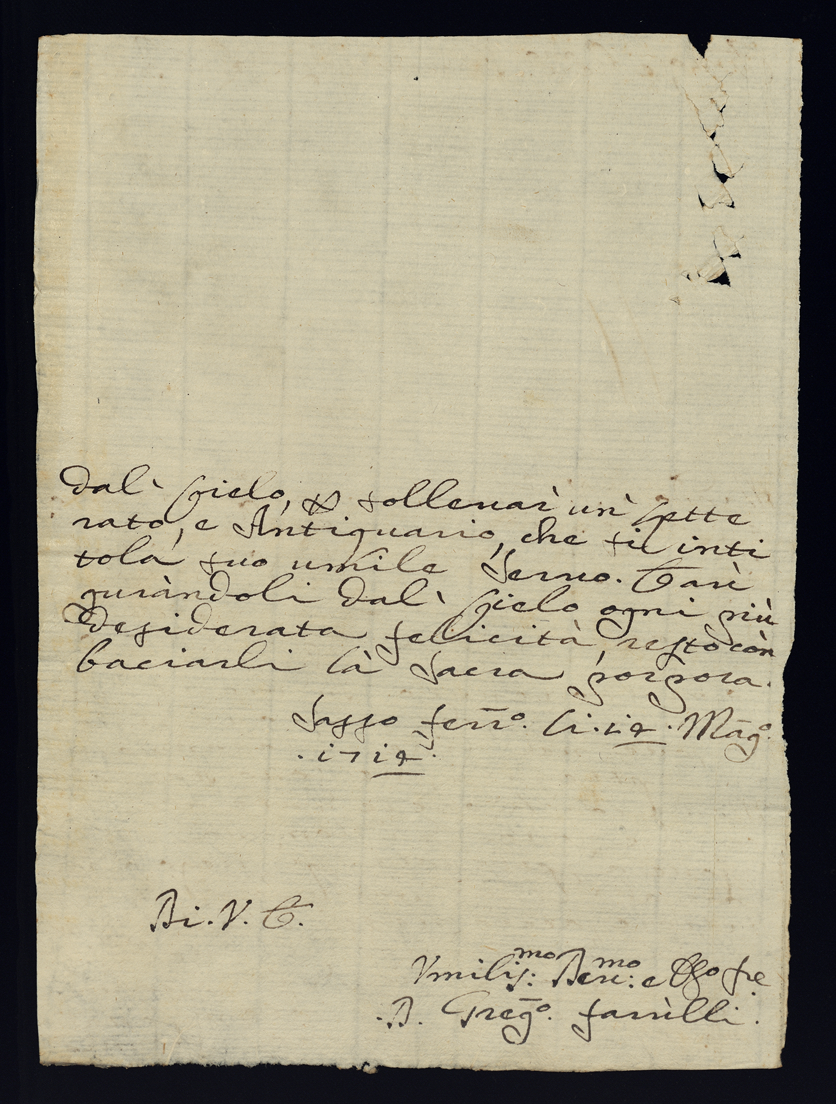 dal' Cielo, p sollevar un' Lette
rato, e Antiquario, che si inti
tola suo umile Servo. E auì
gurandoli dal' Cielo ogni più
desiderata felicità, resto còn
baciarli la Sacra porpora.
Sasso ferr.º li. 12. Mag.º
.1712.
Di. V. E.
Vmilis:mo Deu:mo e
D. Greg.º fanèlli.